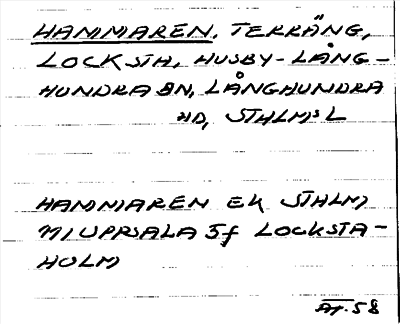 HAMMAREN, TERRÄNG,
LOCKSTA, HUSBY-LÅNG-
HUNDRA SN, LÅNGHUNDRA
HD, STHLMS L
HAMMAREN EK STHLM
NI UPPSALA 5f LOCKSTA-
HOLM
58